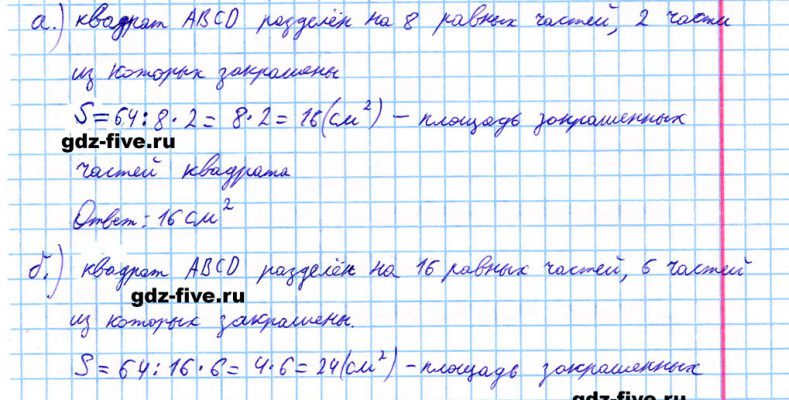 а.) квадрат ABCD разделён на 8 равных частей, 2 части
из которых закрашены
S = 64 : 8 · 2 = 8 · 2 = 16 (см²) – площадь закрашенных
gdz-five.ru
частей квадрата
Ответ: 16 см²
б.) квадрат ABCD разделён на 16 равных частей, 6 частей
gdz-five.ru
из которых закрашены.
S = 64 : 16 · 6 = 4 · 6 = 24 (см²) – площадь закрашенных
gdz-five.ru